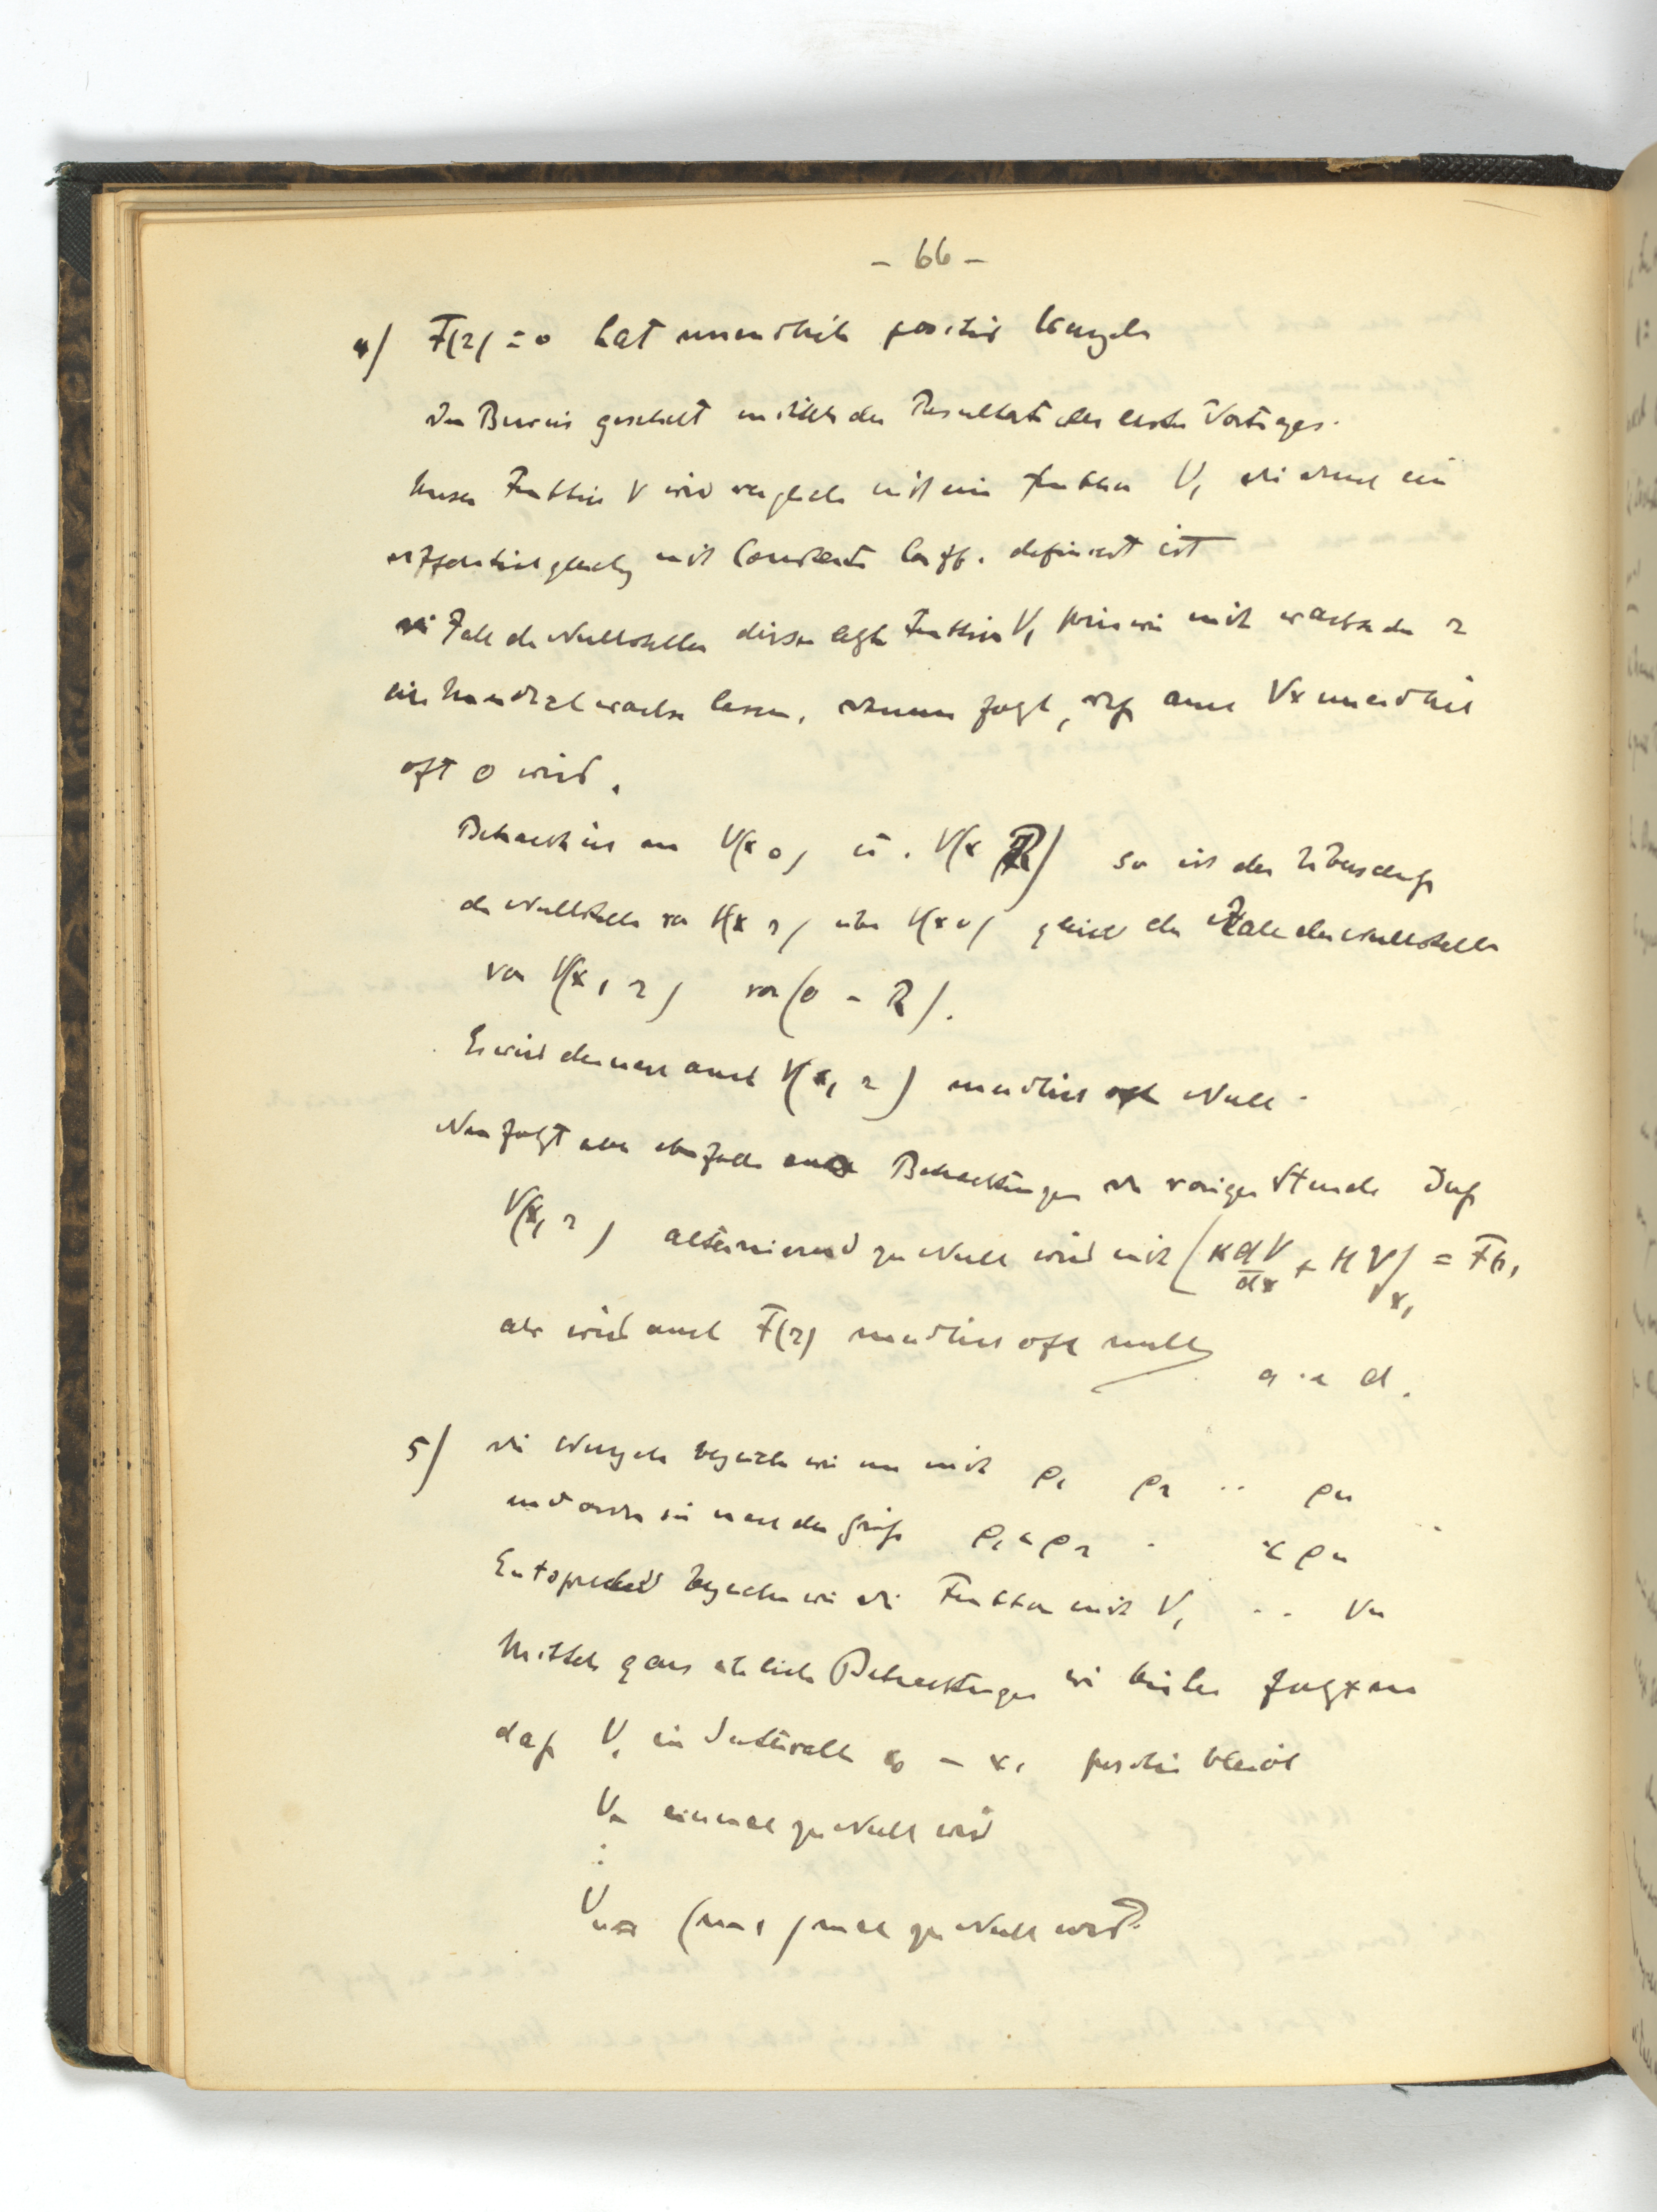 - 66 -
4) F(r) = 0 hat unendlich positive Wurzeln
Der Beweis geschieht mittels der Resultate des ersten Vortrages.
Unsere Funktion V wird verglichen mit einer Funktion V, die durch eine
Differentialgleichung mit Constanten Coeff. definiert ist
Die Zahl der Nullstellen dieser letzten Funktion V, können wir mit wachsendem r
ins Unendliche wachsen lassen, daraus folgt, daß auch Vx unendlich
oft 0 wird.
Betrachten wir nun V(x 0) u. V(x R) so ist der Überschuß
der Nullstellen von V(x r) über V(x 0) gleich der Zahl der Nullstellen
von V(x, r) von (0 - R).
Es wird demnach auch V(x, r) unendlich oft Null.
Nun folgt aber ebenfalls aus Betrachtungen der vorigen Stunde daß
V(x, r) alternierend zu Null wird mit (K dV/dx + H V)x, = F(r)
also wird auch F(r) unendlich oft null
q. e. d.
5) Die Wurzeln bezeichnen wir nun mit ρ1 ρ2 .. ρn
und ordnen sie nach der Größe ρ1 < ρ2 . < ρn
Entsprechend bezeichnen wir die Funktionen mit V1 .. Vn
Mittels ganz ähnlicher Betrachtungen wie bisher folgt nun
daß V1 im Intervall x0 - x1 positiv bleibt
V2 einmal zu Null wird
:
Vn (n-1) mal zu Null wird.